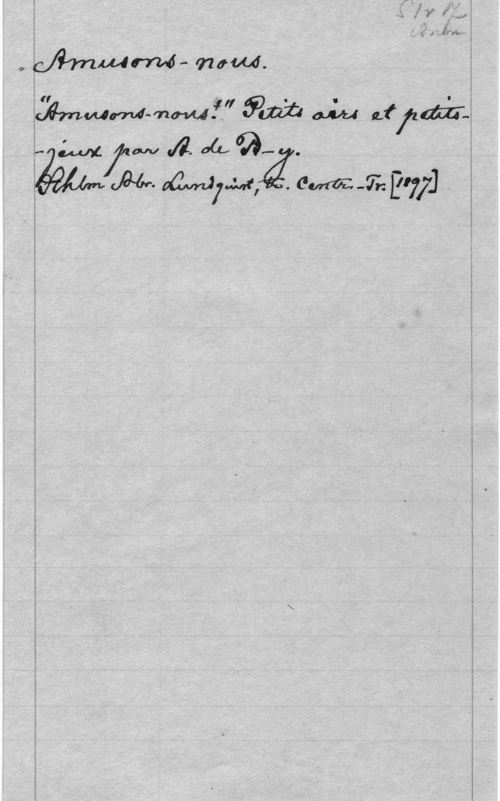 Amusons-nous.
"Amusons-nous!" Petits airs et petits-
-jeux par A. de B-y.
Sthlm Abr. Lundquist, tr. Centr.-Tr. [1897]